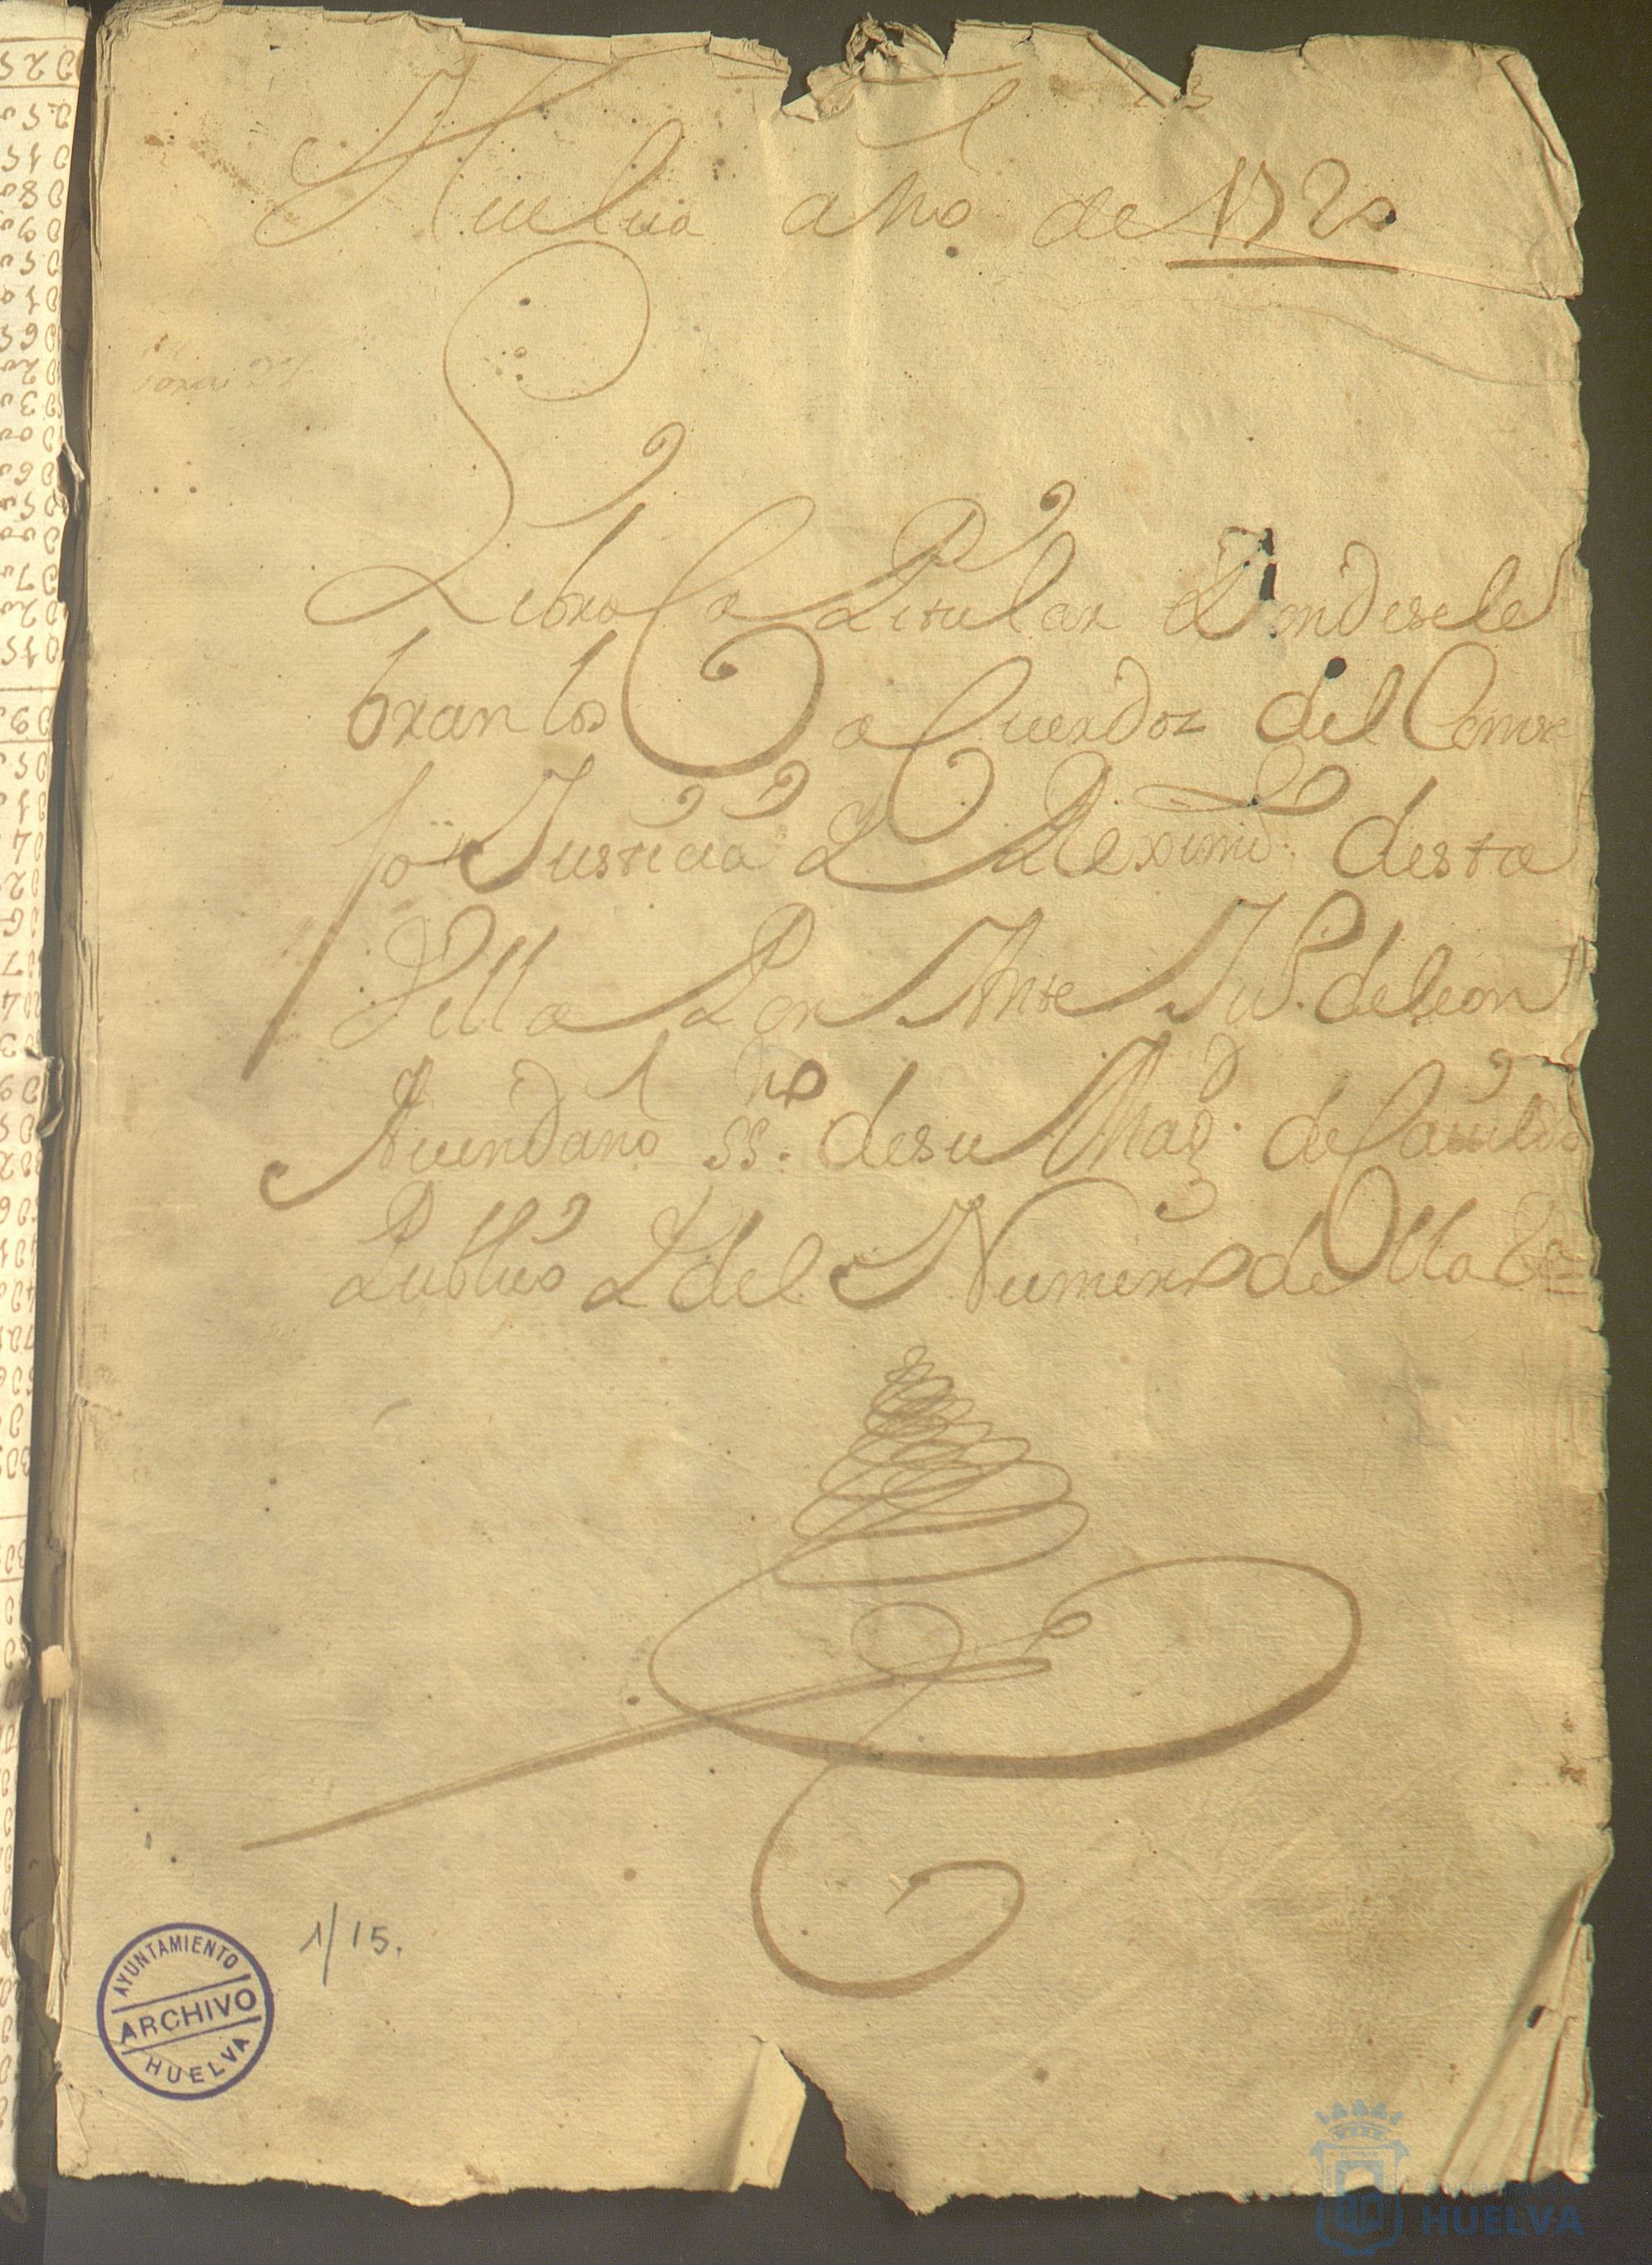 Huelua año de 1720
Libro Capitular Donde se cele
bran los aCuerdos del Conse
jo Justicia Y Reximi.to desta
Villa Por Ante Ju.o de leon
Auendaño ss.no de su Mag.d de Cauildo
Publico Y del Numero de lla
1/15.
AYUNTAMIENTO
ARCHIVO
HUELVA
HUELVA